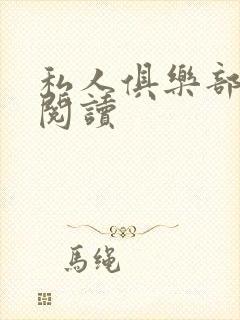 私人俱樂部
閱讀
馬繩